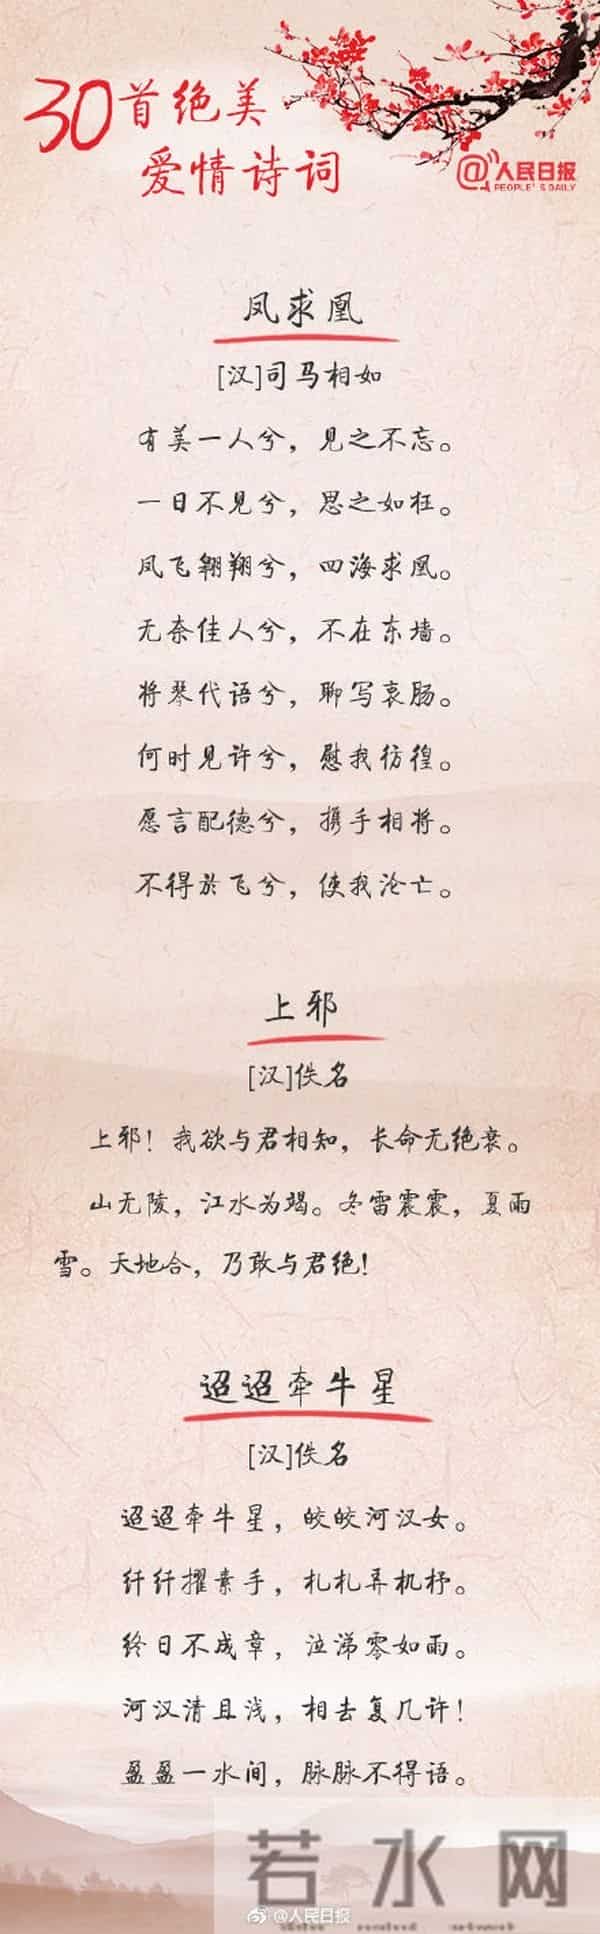 30首绝美
爱情诗词
@人民日报
PEOPLE'S DAILY
凤求凰
[汉]司马相如
有美一人兮，见之不忘。
一日不见兮，思之如狂。
凤飞翱翔兮，四海求凰。
无奈佳人兮，不在东墙。
将琴代语兮，聊写衷肠。
何时见许兮，慰我彷徨。
愿言配德兮，携手相将。
不得於飞兮，使我沦亡。
上邪
[汉]佚名
上邪！我欲与君相知，长命无绝衰。
山无陵，江水为竭。冬雷震震，夏雨
雪。天地合，乃敢与君绝！
迢迢牵牛星
[汉]佚名
迢迢牵牛星，皎皎河汉女。
纤纤擢素手，札札弄机杼。
终日不成章，泣涕零如雨。
河汉清且浅，相去复几许！
盈盈一水间，脉脉不得语。
若水网
@人民日报